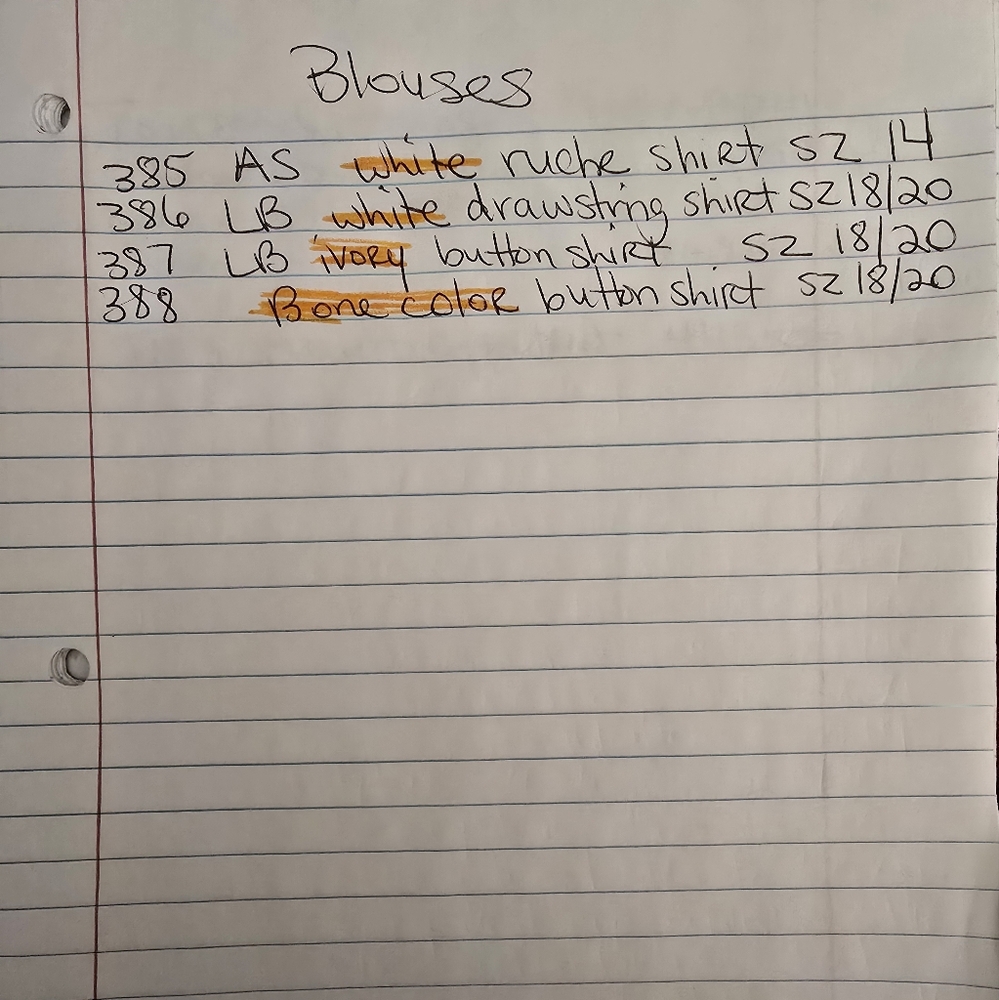 Blouses
385 AS white ruche shirt SZ 14
386 LB white drawstring shirt SZ 18/20
387 LB ivory button shirt SZ 18/20
388 Bone color button shirt SZ 18/20